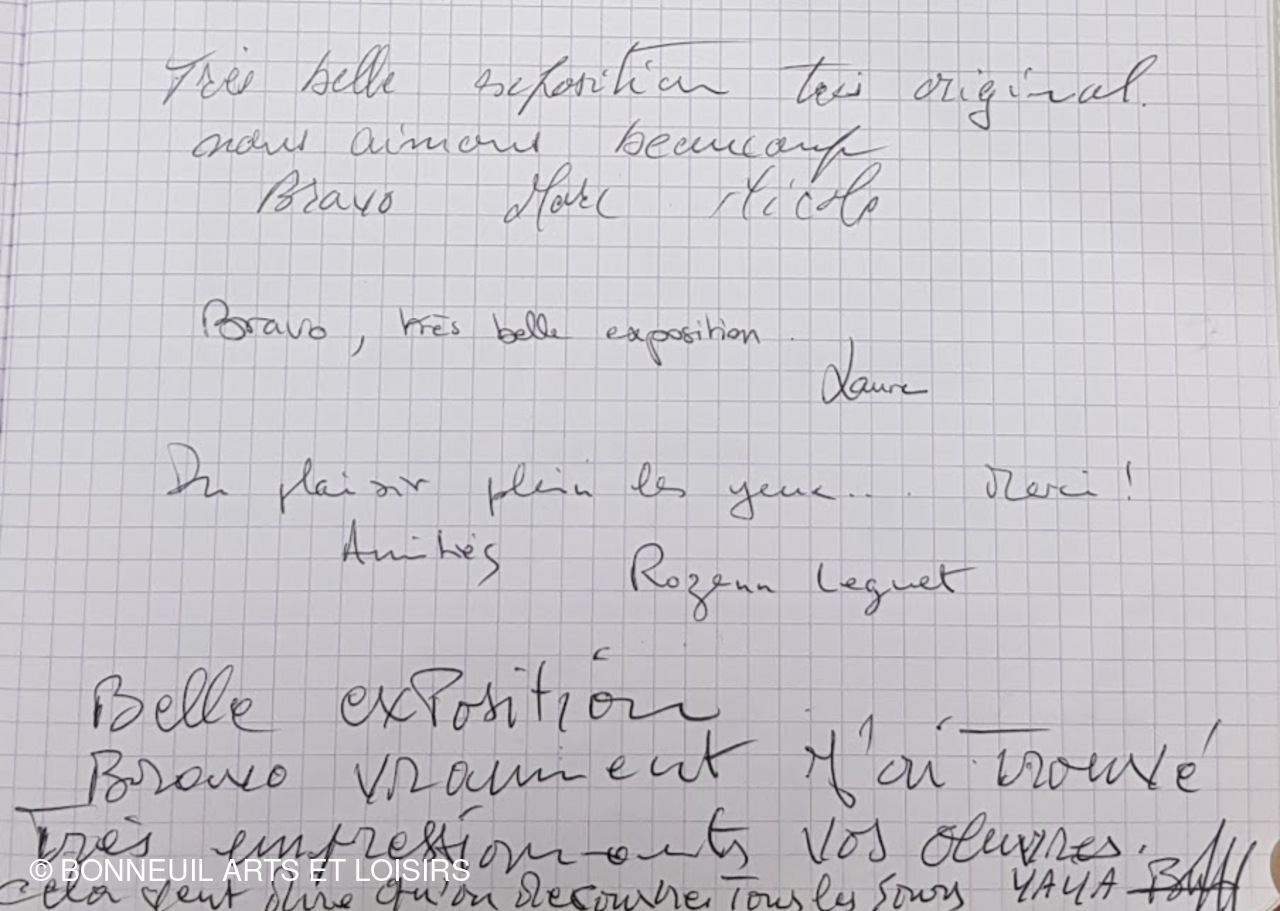 Très belle exposition très original.
nous aimons beaucoup
Bravo Marc Nicole
Bravo, très belle exposition.
Laure
Du plaisir plein les yeux... Merci !
Amitiés
Rozenn Leguet
Belle exPosition
Bravo vraiment J'ai trouvé
Très impressionnants vos œuvres.
© BONNEUIL ARTS ET LOISIRS
cela veut dire qu'on Découvre Tous les Jours YAYA